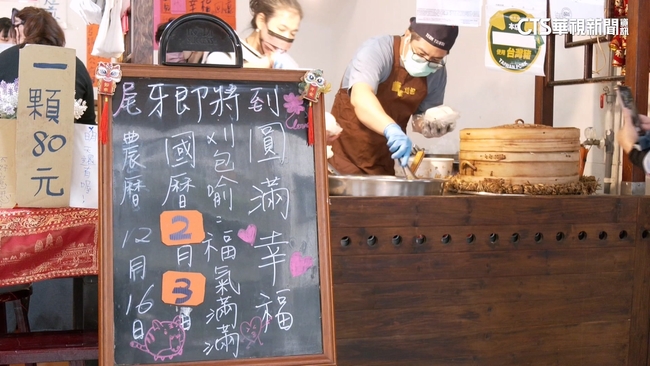 一顆80元
尾牙即將到
圓滿幸福
刈包喻:福氣滿滿
國曆2月3日
農曆12月16日
CTS華視新聞資訊
台灣豬